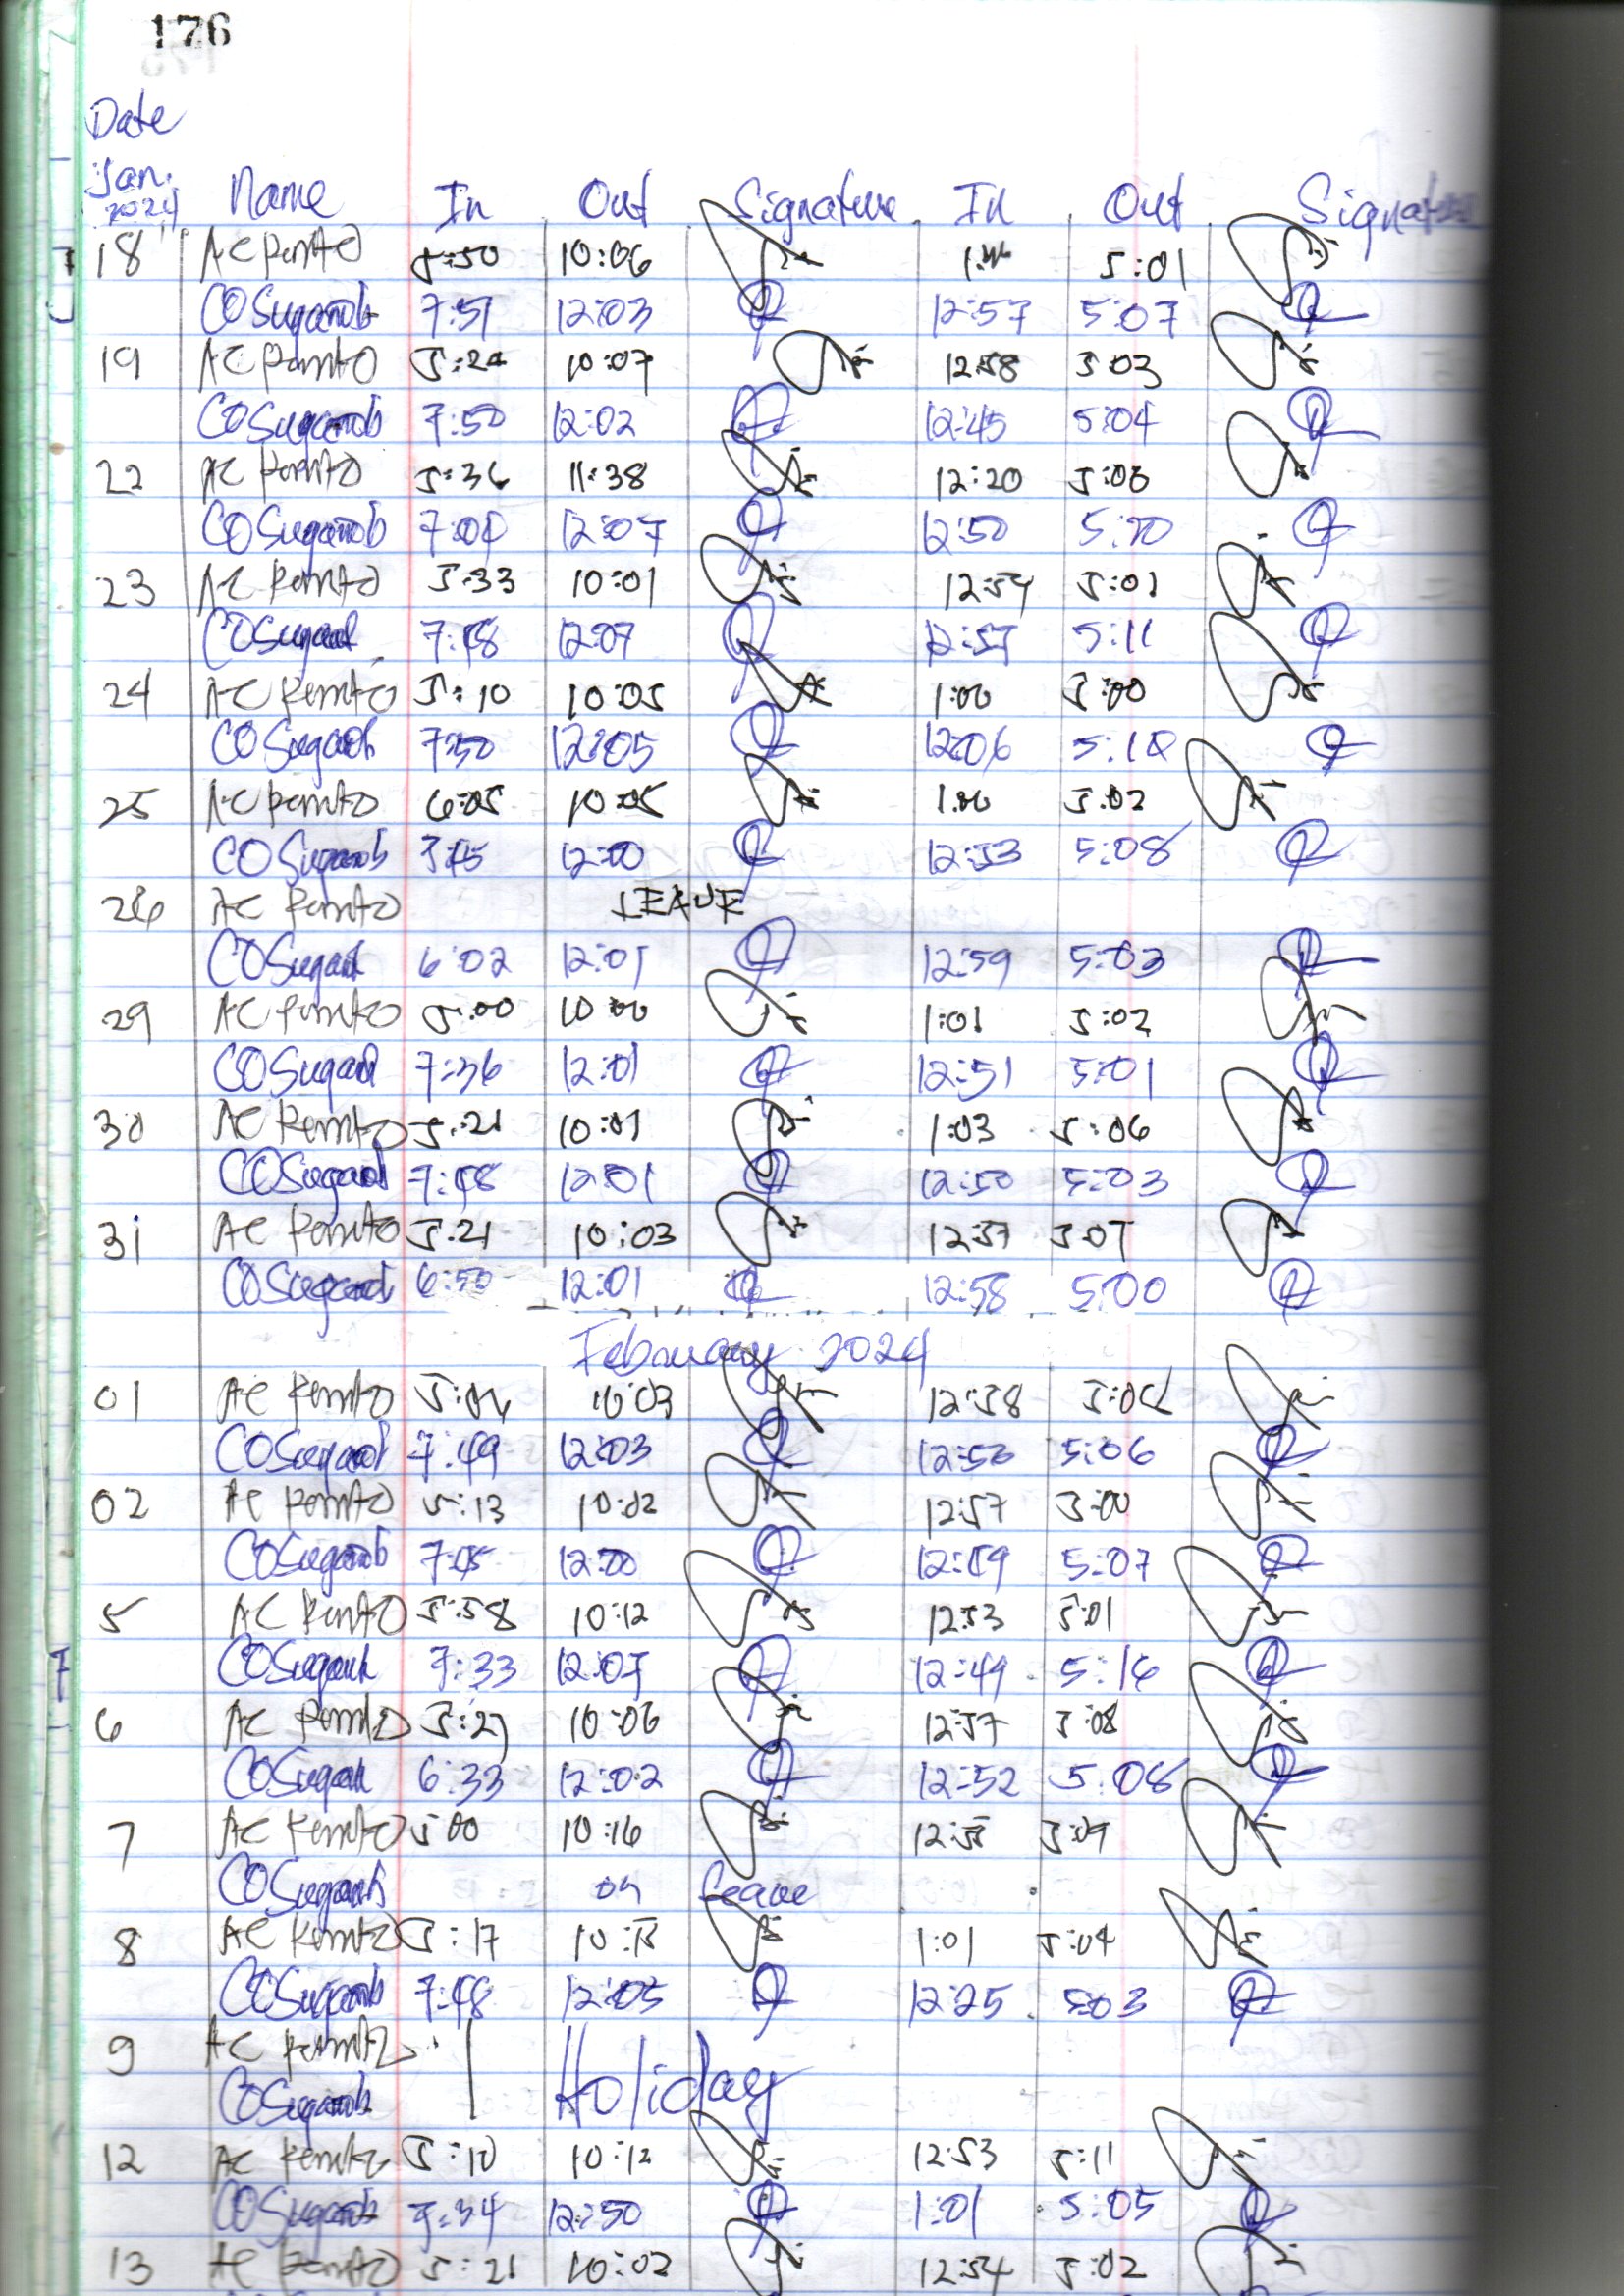 176
Date
Jan. 2024 Name In Out Signature In Out Signature
18 AC Pernito 5:50 10:06 5:01
COSuganob 7:51 12:03 12:57 5:07
19 AC Pernito 5:24 10:07 12:58 5:03
COSuganob 7:50 12:02 12:45 5:04
22 AC Pernito 5:36 11:38 12:20 5:06
COSuganob 12:07 12:50 5:10
23 AC Pernito 5:33 10:01 12:54 5:01
COSuganob 7:48 12:07 12:57 5:11
24 AC Pernito 5:10 10:05 1:00 5:00
COSuganob 7:50 12:05 12:06
25 AC Pernito 6:05 10:05 1:00 5:02
COSuganob 12:00 12:53 5:08
26 AC Pernito LEAVE
COSuganob 6:02 12:01 12:59 5:03
29 AC Pernito 5:00 10:00 1:01 5:02
COSuganob 7:36 12:01 12:51 5:01
30 AC Pernito 5:21 10:01 1:03 5:06
COSuganob 7:48 12:01 12:50 5:03
31 AC Pernito 5:21 10:03 12:57 5:07
COSuganob 6:50 12:01 12:58 5:00
February 2024
01 AC Pernito 10:03 12:58
COSuganob 7:49 12:03 12:50 5:06
02 AC Pernito 5:13 10:02 12:57 5:00
COSuganob 7:45 12:00 12:49 5:07
5 AC Pernito 5:58 10:12 12:53 5:01
COSuganob 7:33 12:07 12:49 5:16
6 AC Pernito 5:27 10:06 12:57 5:08
COSuganob 6:33 12:02 12:52 5:08
7 AC Pernito 5:00 10:16 5:09
COSuganob on leave
8 AC Pernito 5:17 1:01 5:04
COSuganob 7:48 12:05 12:25 5:03
9 AC Pernito
COSuganob Holiday
12 AC Pernito 5:10 10:12 12:53 5:11
COSuganob 7:34 12:50 1:01 5:05
13 AC Pernito 5:21 10:02 12:54 5:02